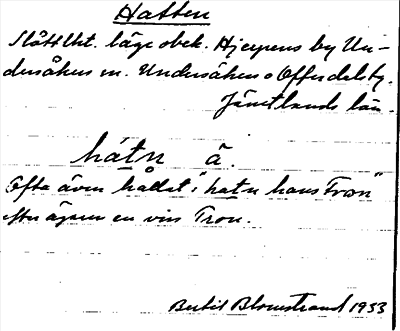 Hatten
Slåttlht. läge obek. Hjerpens by Un-
dersåkers sn. Undersåkers o Offerdals tg.
Jämtlands län.
hátn ä.
Ofta även kallat "hatn hans Tron"
efter ägaren en viss Tron.
Bertil Blomstrand 1933